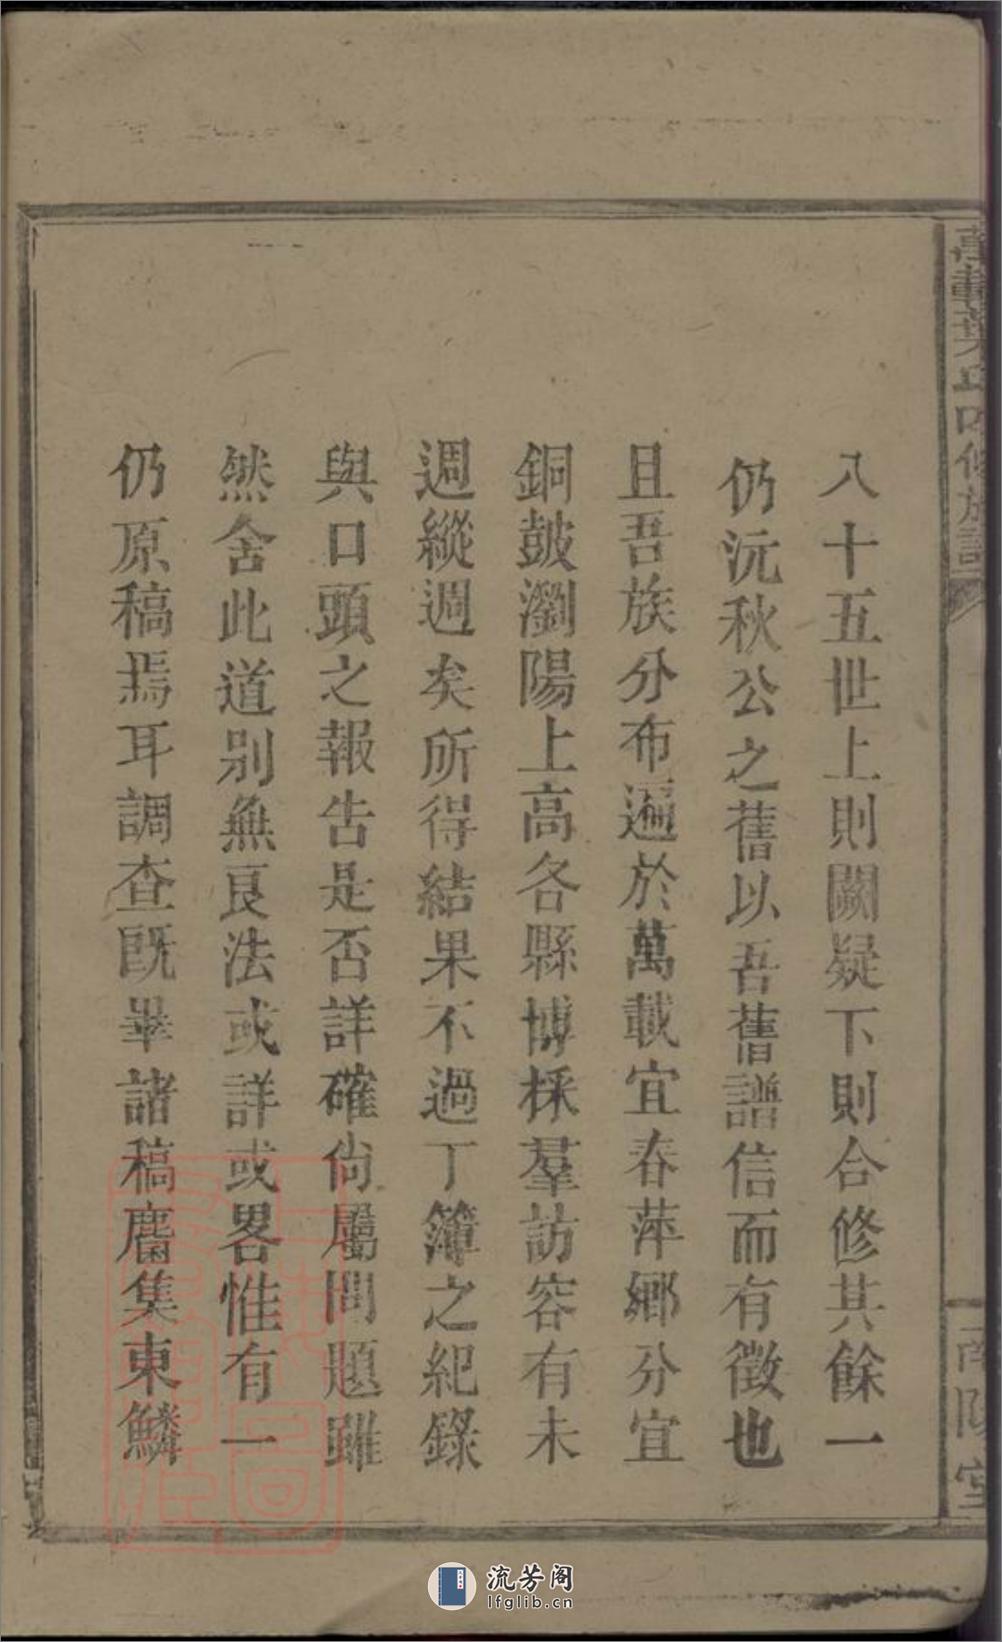 萬載葉氏四修族譜
南陽堂
八十五世上則闕疑下則合修其餘一
仍沅秋公之舊以吾舊譜信而有徵也
且吾族分布遍於萬載宜春萍鄉分宜
銅鼓瀏陽上高各縣博採羣訪容有未
週縱週矣所得結果不過丁簿之紀錄
與口頭之報告是否詳確尙屬問題雖
然舍此道別無良法或詳或畧惟有一
仍原稿焉耳調查既畢諸稿麕集東鱗
流芳阁
lfglib.cn